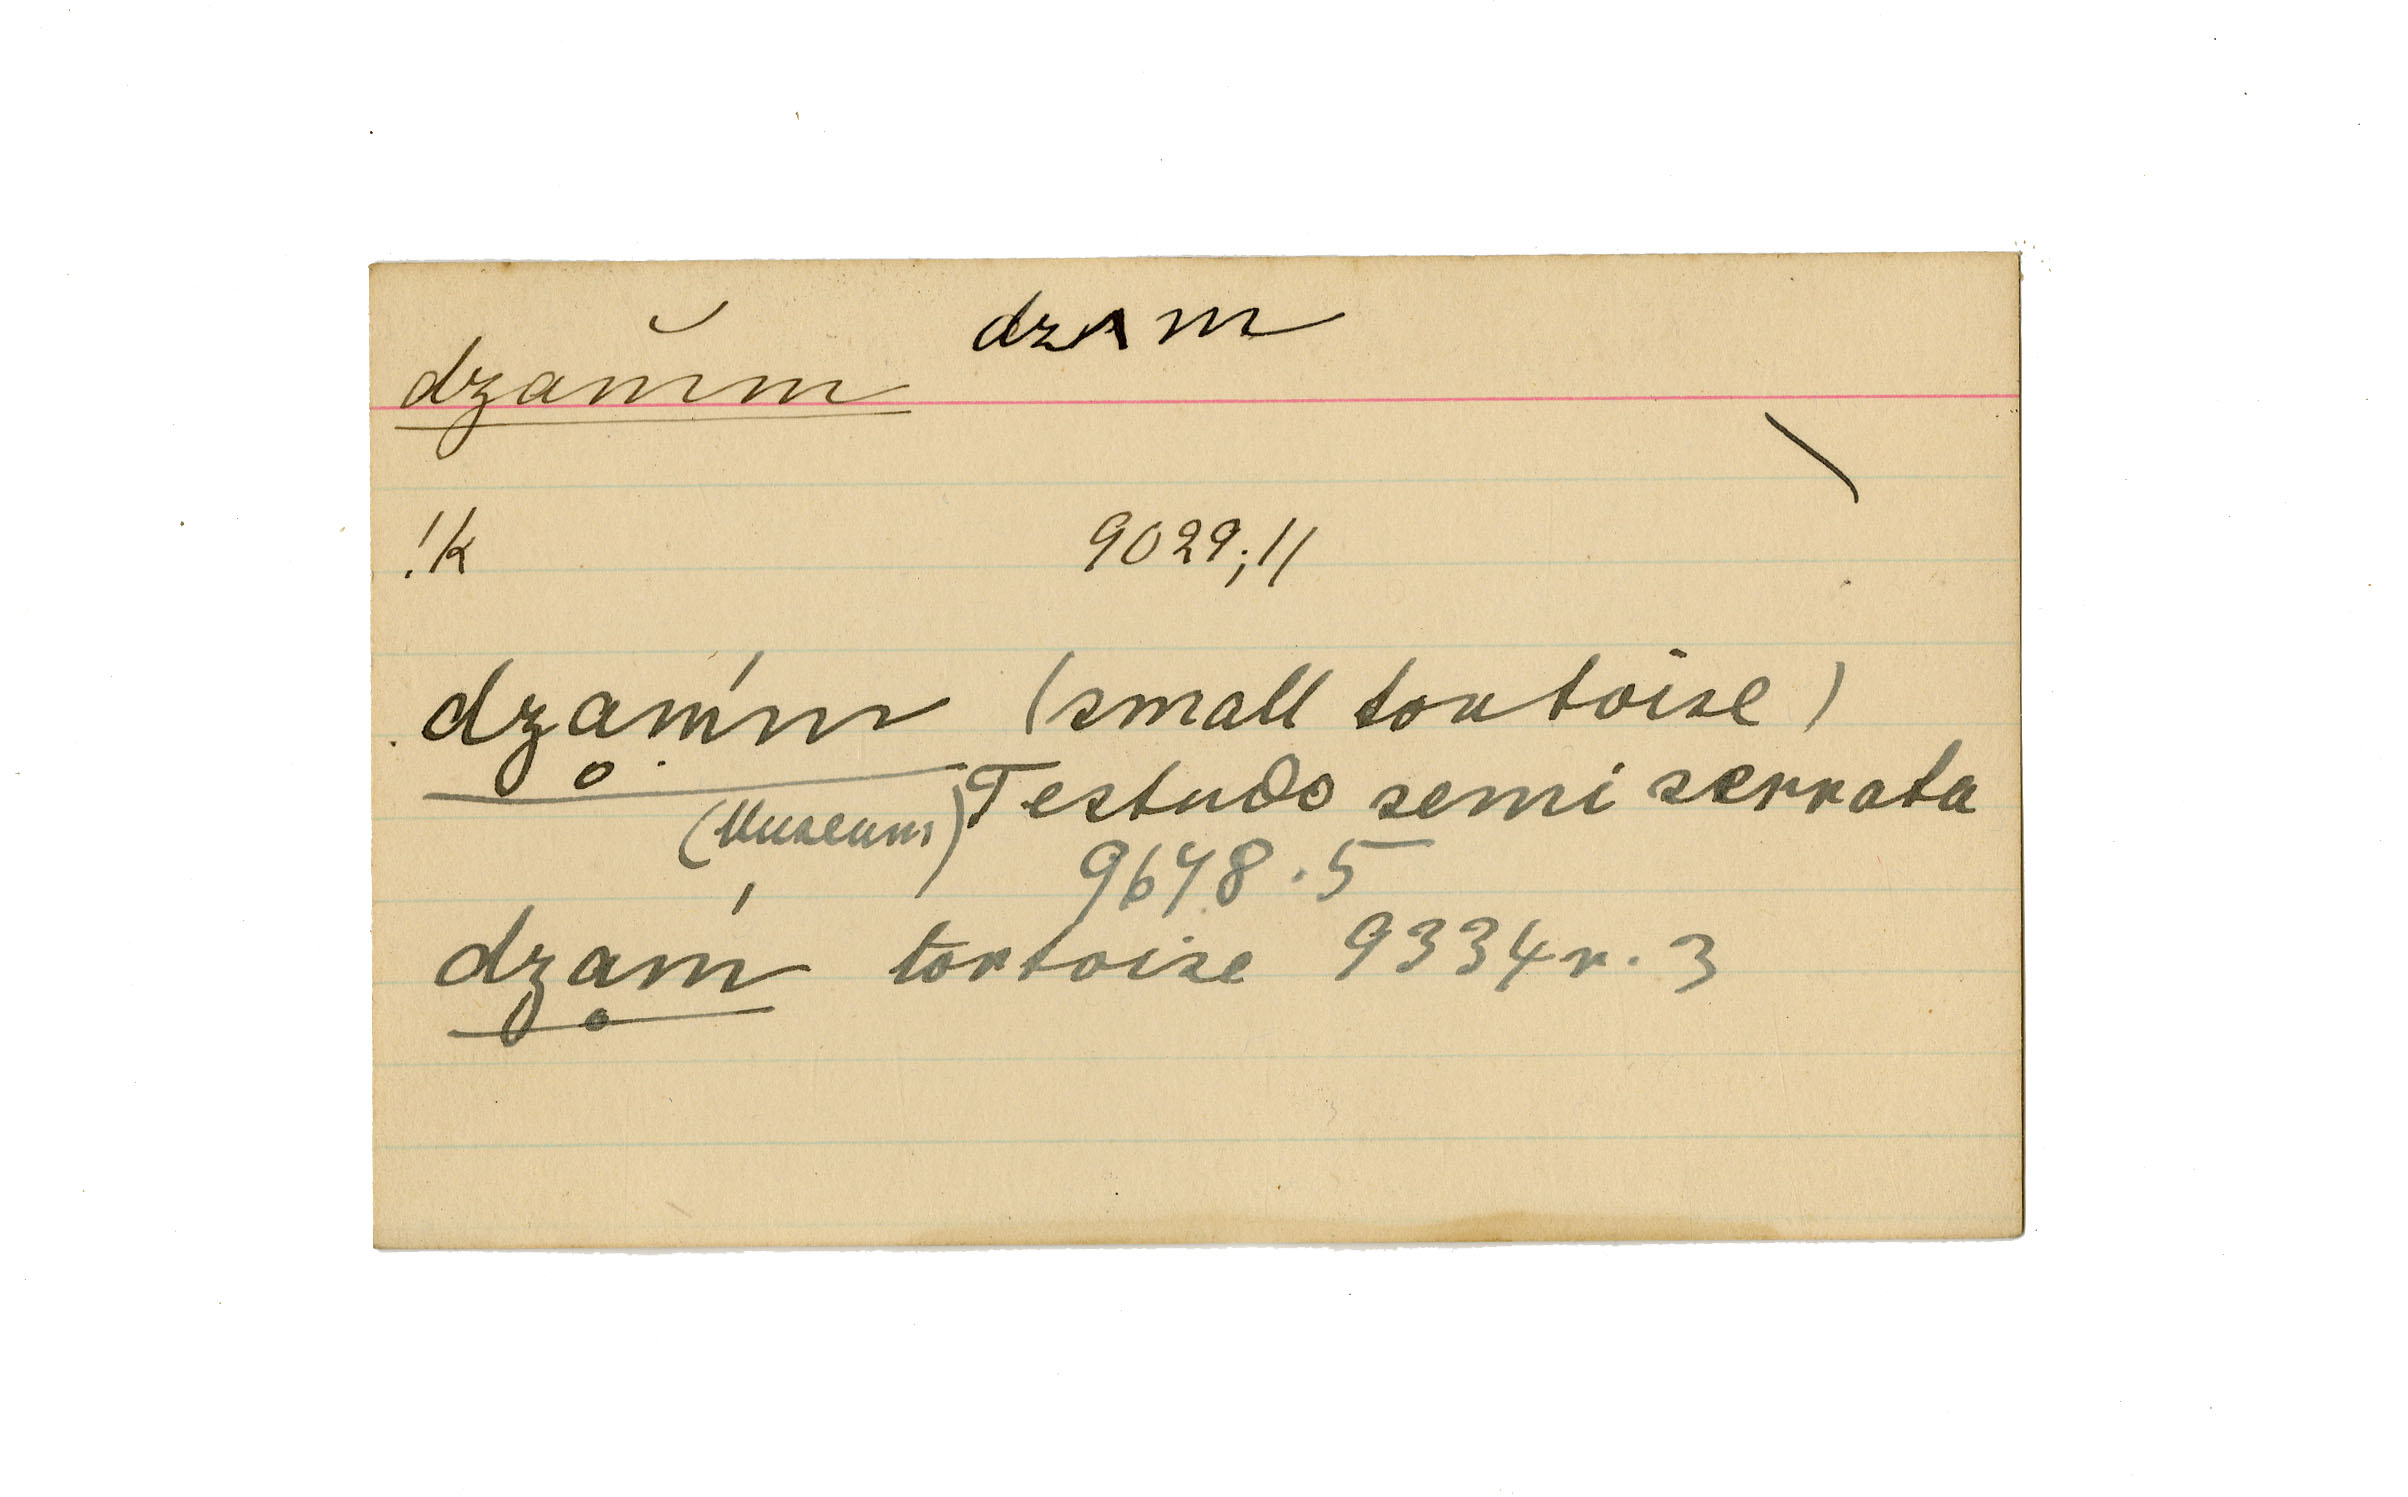 dzʌm
dzam̆m
!k 9029;11
dzḁm'm (small tortoise)
(Museum) Testudo semi serrata
9648.5
dzḁḿ tortoise 9334r.3